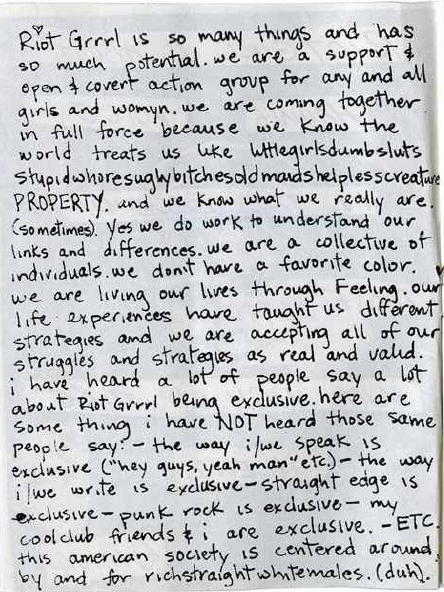 Riot Grrrl is so many things and has
so much potential. we are a support &
open & covert action group for any and all
girls and womyn. we are coming together
in full force because we know the
world treats us like littlegirlsdumbsluts
stupidwhoresuglybitchesoldmaidshelplesscreature
PROPERTY. and we know what we really are.
(sometimes). Yes we do work to understand our
links and differences. we are a collective of
individuals. we don't have a favorite color.
we are living our lives through Feeling. our
life experiences have taught us different
strategies and we are accepting all of our
struggles and strategies as real and valid.
i have heard a lot of people say a lot
about Riot Grrrl being exclusive. here are
some thing i have NOT heard those same
people say: - the way i/we speak is
exclusive ("hey guys, yeah man" etc.) - the way
i/we write is exclusive - straight edge is
exclusive - punk rock is exclusive - my
coolclub friends & i are exclusive. - ETC.
this american society is centered around.
by and for richstraightwhitemales. (duh).